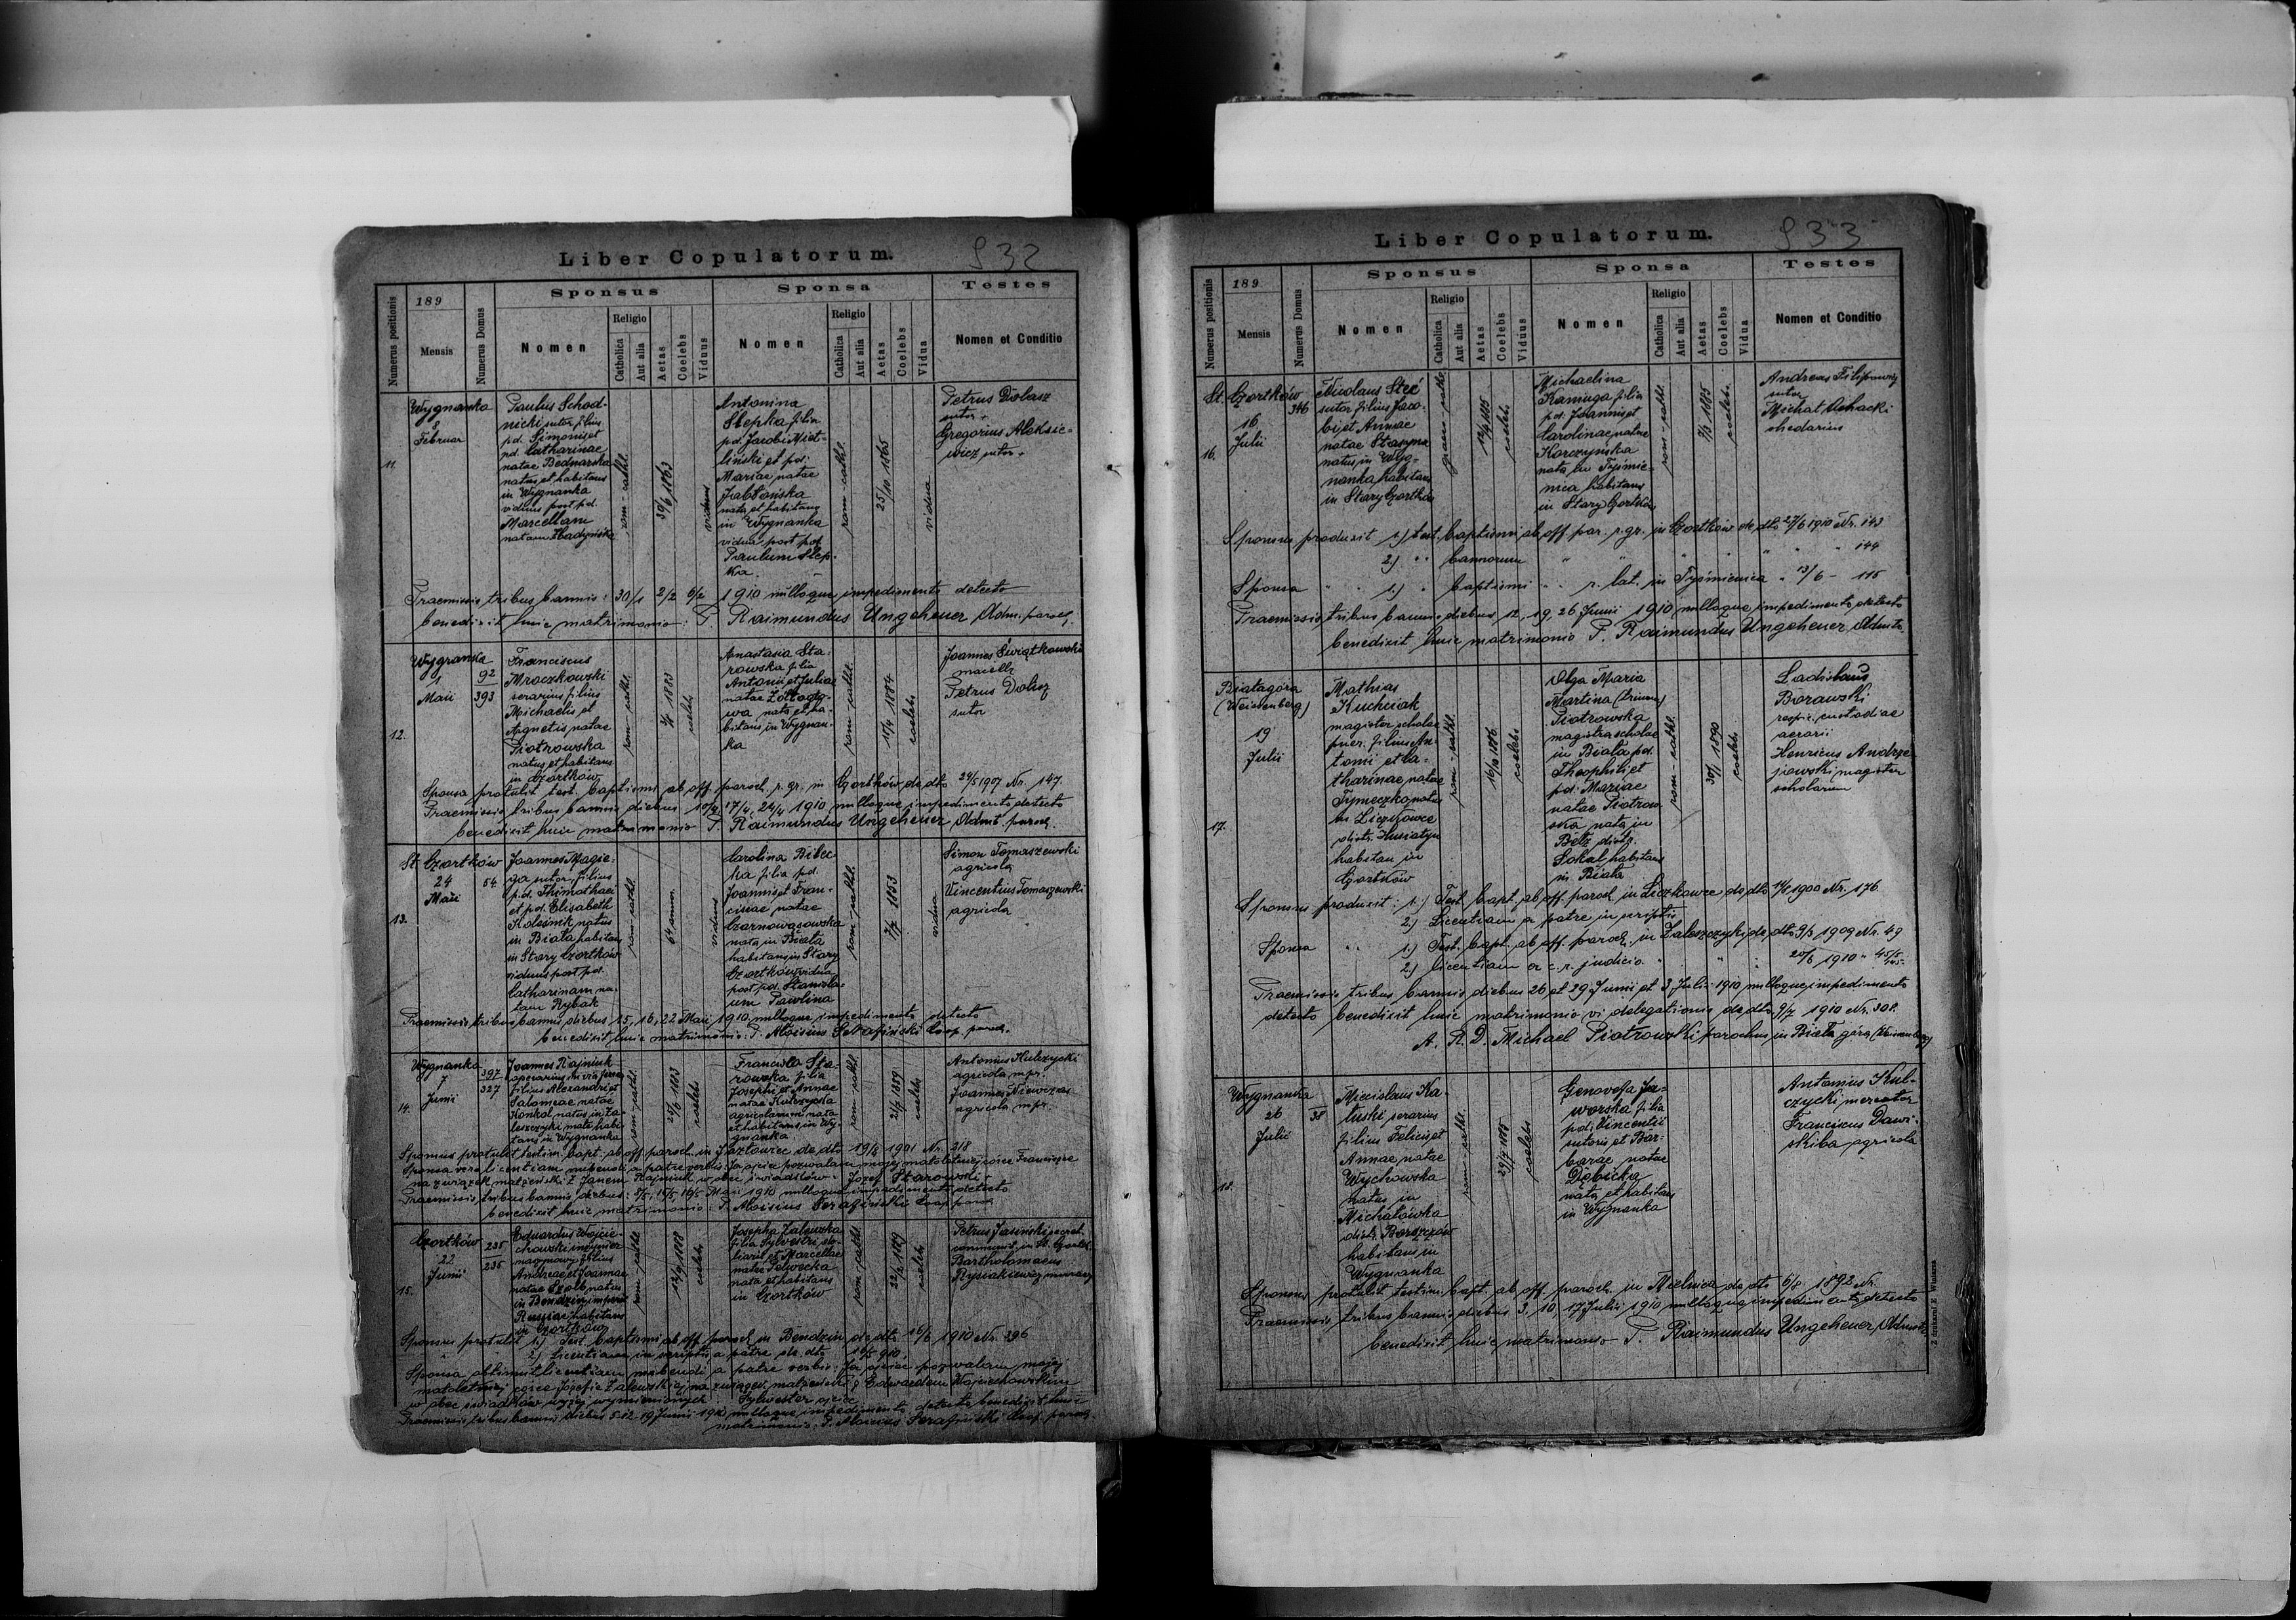 Liber Copulatorum.
932
Numerus positionis
189
Mensis
Numerus Domus
Sponsus
Nomen
Religio
Catholica
Aut alia
Aetas
Coelebs
Viduus
Sponsa
Nomen
Religio
Catholica
Aut alia
Aetas
Coelebs
Vidua
Testes
Nomen et Conditio
11.
Wygnanka
8
Februar
Paulus Schod-
nicki sutor filius
pd. Simonis et
pd. Catharinae
natae Bednarska
natus et habitans
in Wygnanka
viduus post pd.
Marcellam
natam
rom-cathl.
30/6 1863
viduus
Antonina
Slepka filia
pd. Jacobi Miot-
liński et pd.
Mariae natae
Jabłońska
nata et habitans
in Wygnanka
vidua post pd
Paulum Slep-
ka.
rom cathl.
25/10 1865
vidua
Petrus Dolasz
sutor +
Gregorius Aleksie-
wicz sutor +
Praemissis tribus bannis: 30/1 2/2 6/2 1910 nulloque impedimento detecto
benedixit huic matrimonio: P. Raimundus Ungeheuer Adm. paroch.
12.
Wygnanka
1
Maii
92
393
Franciscus
Mroczkowski
serarius filius
Michaelis et
Agnetis natae
Piotrowska
natus et habitans
in Czortków
rom-cathl.
1883
coelebs
Anastasia Sta-
rowska filia
Antonii et Juliae
natae
nata et ha-
bitans in Wygnan-
ka
rom-cathl.
11/4 1884
coelebs
Joannes Świątkowski
Petrus Dolasz
sutor
Sponsa protulit test. baptismi ab off. paroch. r. gr. in Czortków de dto 24/5 1907 Nr. 147.
Praemissis tribus bannis diebus 10/4, 17/4, 24/4 1910 nulloque impedimento detecto
benedixit huic matrimonio P. Raimundus Ungeheuer Admt paroch.
13.
St. Czortków
24
Maii
54
Joannes Magie-
ra sutor, filius
pd. Thimothaei
et pd. Elisabeth
Kolesnik natus
in Biała habitans
in Stary Czortków
viduus post pd.
Catharinam na-
tam Rybak
rom-cathl.
64 annor.
viduus
Carolina Bilec-
ka filia pd.
Joannis et Fran-
ciscae natae
Czarnowąsowska
nata in Biała
habitans in Stary
Czortków vidua
post pd. Stanisla-
um Pawlina
rom cathl.
7/7 1853
vidua
Simon Tomaszewski
agricola
Vincentius Tomaszewski
agricola
Praemissis tribus bannis diebus 15, 16, 22 Maii 1910 nulloque impedimento detecto
benedixit huic matrimonio: P. Aloisius Serafiński Coop. paroch.
14.
Wygnanka
7
Junii
397
327
Joannes Kajniuk
operarius
filius Alexandri et
Salomeae natae
Konkol natus in Za-
leszczyki małe habi-
tans in Wygnanka
rom-cathl.
1883
coelebs
Francisca Sta-
rowska filia
Josephi et Annae
natae Kulczycka
agricolarum nata
et habitans in Wy-
gnanka
rom-cathl.
1889
coelebs
Antonius Kulczycki
agricola mpr.
Joannes
agricola mpr.
Sponsus protulit testim. bapt. ab off. paroch. in Jazłowiec de dto 19/8 1901 Nr. 218
Sponsa vero licentiam nubendi a patre verbis: Ja ojciec pozwalam mojej małoletniej córce Franciszce
na związek małżeński z Janem Kajniuk w obec świadków: Józef Starowski
Praemissis tribus bannis diebus: 8/5, 15/5 16/5 Maii 1910 nulloque impedimento detecto
benedixit huic matrimonio: P. Aloisius Serafiński Coop. paroch.
15.
Czortków
22
Junii
235
235
Eduardus Wojcie-
chowski
filius
Andreae et Joannae
natae Szolb natus
in Bendzin imperii
Russiae habitans
in Czortków
rom cathl.
13/9 1888
coelebs
Josepha Zalewska
filia Sylvestri
et Marcellae
natae Selwecka
nata et habitans
in Czortków
rom cathl.
22/2 1889
coelebs
Petrus Jasiński secret.
Bartholomaeus
Rysiakiewicz murarz
Sponsus protulit 1) test. baptismi ab off. paroch. in Bendzin de dto 10/6 1910 Nr. 396
2) licentiam in scriptis a patre de dto 16/5 910.
Sponsa obtinuit licentiam nubendi a patre verbis: Ja ojciec pozwalam mojej
małoletniej córce Józefie Zalewskiej na związek małżeński z Edwardem Wojciechowskim
w obec świadków wyżej wymienionych Sylwester ojciec
Praemissis tribus bannis diebus 5. 12. 19 Junii 1910 nulloque impedimento detecto benedixit huic
matrimonio: P. Aloisius Serafiński Coop. paroch.
Liber Copulatorum.
933
Numerus positionis
189
Mensis
Numerus Domus
Sponsus
Nomen
Religio
Catholica
Aut alia
Aetas
Coelebs
Viduus
Sponsa
Nomen
Religio
Catholica
Aut alia
Aetas
Coelebs
Vidua
Testes
Nomen et Conditio
16.
St. Czortków
16
Julii
346
Nicolaus Steć
sutor filius Jaco-
bi et Annae
natae Stasyna
natus in Wyg-
nanka habitans
in Stary Czortków
graeco-cathl.
12/4 1885
coelebs
Michaelina
Kaminga filia
pd. Joannis et
Carolinae natae
Korczyńska
nata in Tyśmie-
nica habitans
in Stary Czortków
rom-cathl.
7/3 1885
coelebs
Andreas Filipowicz
sutor
Michał Achacki
rhedarius
Sponsus produxit 1.) test. baptismi ab off. par. r. gr. in Czortków de dto 27/6 1910 Nr. 143
2) " bannorum " " " " " " 144
Sponsa " 1.) " baptismi " " r. lat. in Tyśmienica " 13/6 - 115
Praemissis tribus bannis diebus 12, 19, 26 Junii 1910 nulloque impedimento detecto
benedixit huic matrimonio P. Raimundus Ungeheuer Admtr.
17.
Białagóra
(Weissenberg)
19
Julii
Mathias
Kuchciak
magister scholae
puer. filius An-
tonii et Ca-
tharinae natae
Tymeczko natus
in Liczkowce
distr. Husiatyn
habitan in
Czortków
rom-cathl.
16/10 1886
coelebs
Olga Maria
Martina (trinom)
Piotrowska
magistra scholae
in Biała pd.
Theophili et
pd. Mariae
natae Piotrow-
ska nata in
Bełz distr.
Sokal habitans
in Biała
rom-cathl.
30/1 1890
coelebs
Ladislaus
Borawski
respic. custodiae
aerarii
Henricus Andrze-
jowski magister
scholarum
Sponsus produxit: 1.) Test. bapt. ab off. paroch. in Liczkowce de dto 1900 Nr. 176
2.) Licentiam a patre in scriptis
Sponsa " 1.) Test. bapt. ab off. paroch. in Zaleszczyki de dto 9/3 1909 Nr. 49
2.) licentiam a c. r. judicio " " " 20/6 1910
Praemissis tribus bannis diebus 26 et 29 Junii et 3 Julii 1910 nulloque impedimento
detecto benedixit huic matrimonio vi delegationis de dto 9/7 1910 Nr. 308.
A. R. D. Michael Piotrowski parochus in Biała góra (Weissenberg)
18.
Wygnanka
26
Julii
38
Miecislaus Ka-
łuski serarius
filius Felicis et
Annae natae
Wychowska
natus in
Michałówka
distr. Borszczów
habitans in
Wygnanka
rom-cathl.
29/7 1885
coelebs
Genovefa Ja-
worska filia
pd. Vincentii
sutoris et Bar-
barae natae
Dębicka
nata et habitans
in Wygnanka
Antonius Kul-
czycki mercator
Franciscus Dawi-
skiba agricola
Sponsus protulit testim. bapt. ab off. paroch. in Mielnica de dto 6/8 1892 Nr.
Praemissis tribus bannis diebus 3, 10, 17 Julii 1910 nulloque impedimento detecto
benedixit huic matrimonio P. Raimundus Ungeheuer, Admstr.
Z drukarni E. Winiarza